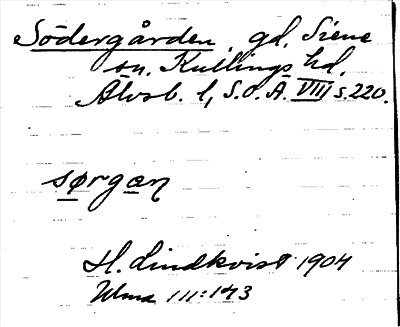 Södergården, gd, Siene
sn. Kullings hd,
Älvsb. l, S.O.Ä. VIII s. 220.
sørgan
H. Lindkvist 1904
Ulma 111:143